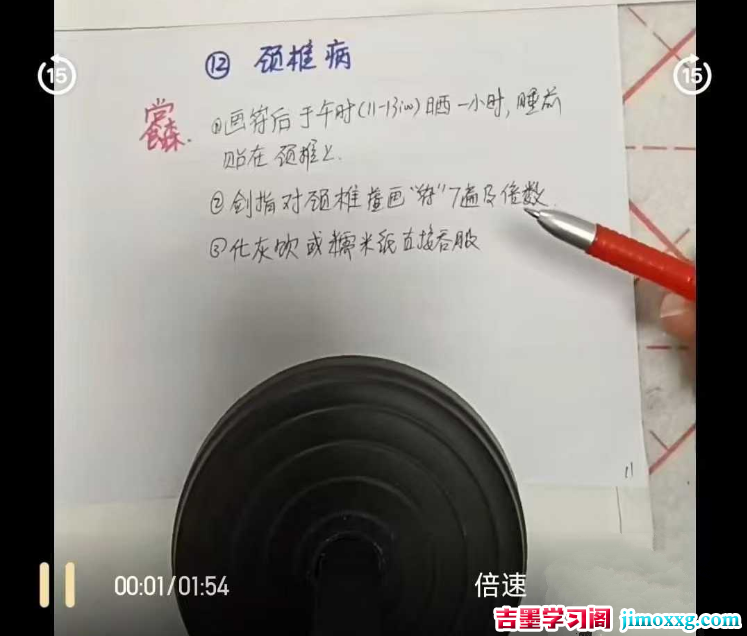 15
15
⑫ 颈椎病
①画符后于午时(11-13:00)日晒一小时,睡前
贴在颈椎上.
②剑指对颈椎虚画“符”7遍及倍数.
③化灰饮或糯米纸直接吞服
11
00:01/01:54
倍速
吉墨学习阁 jimoxxg.com